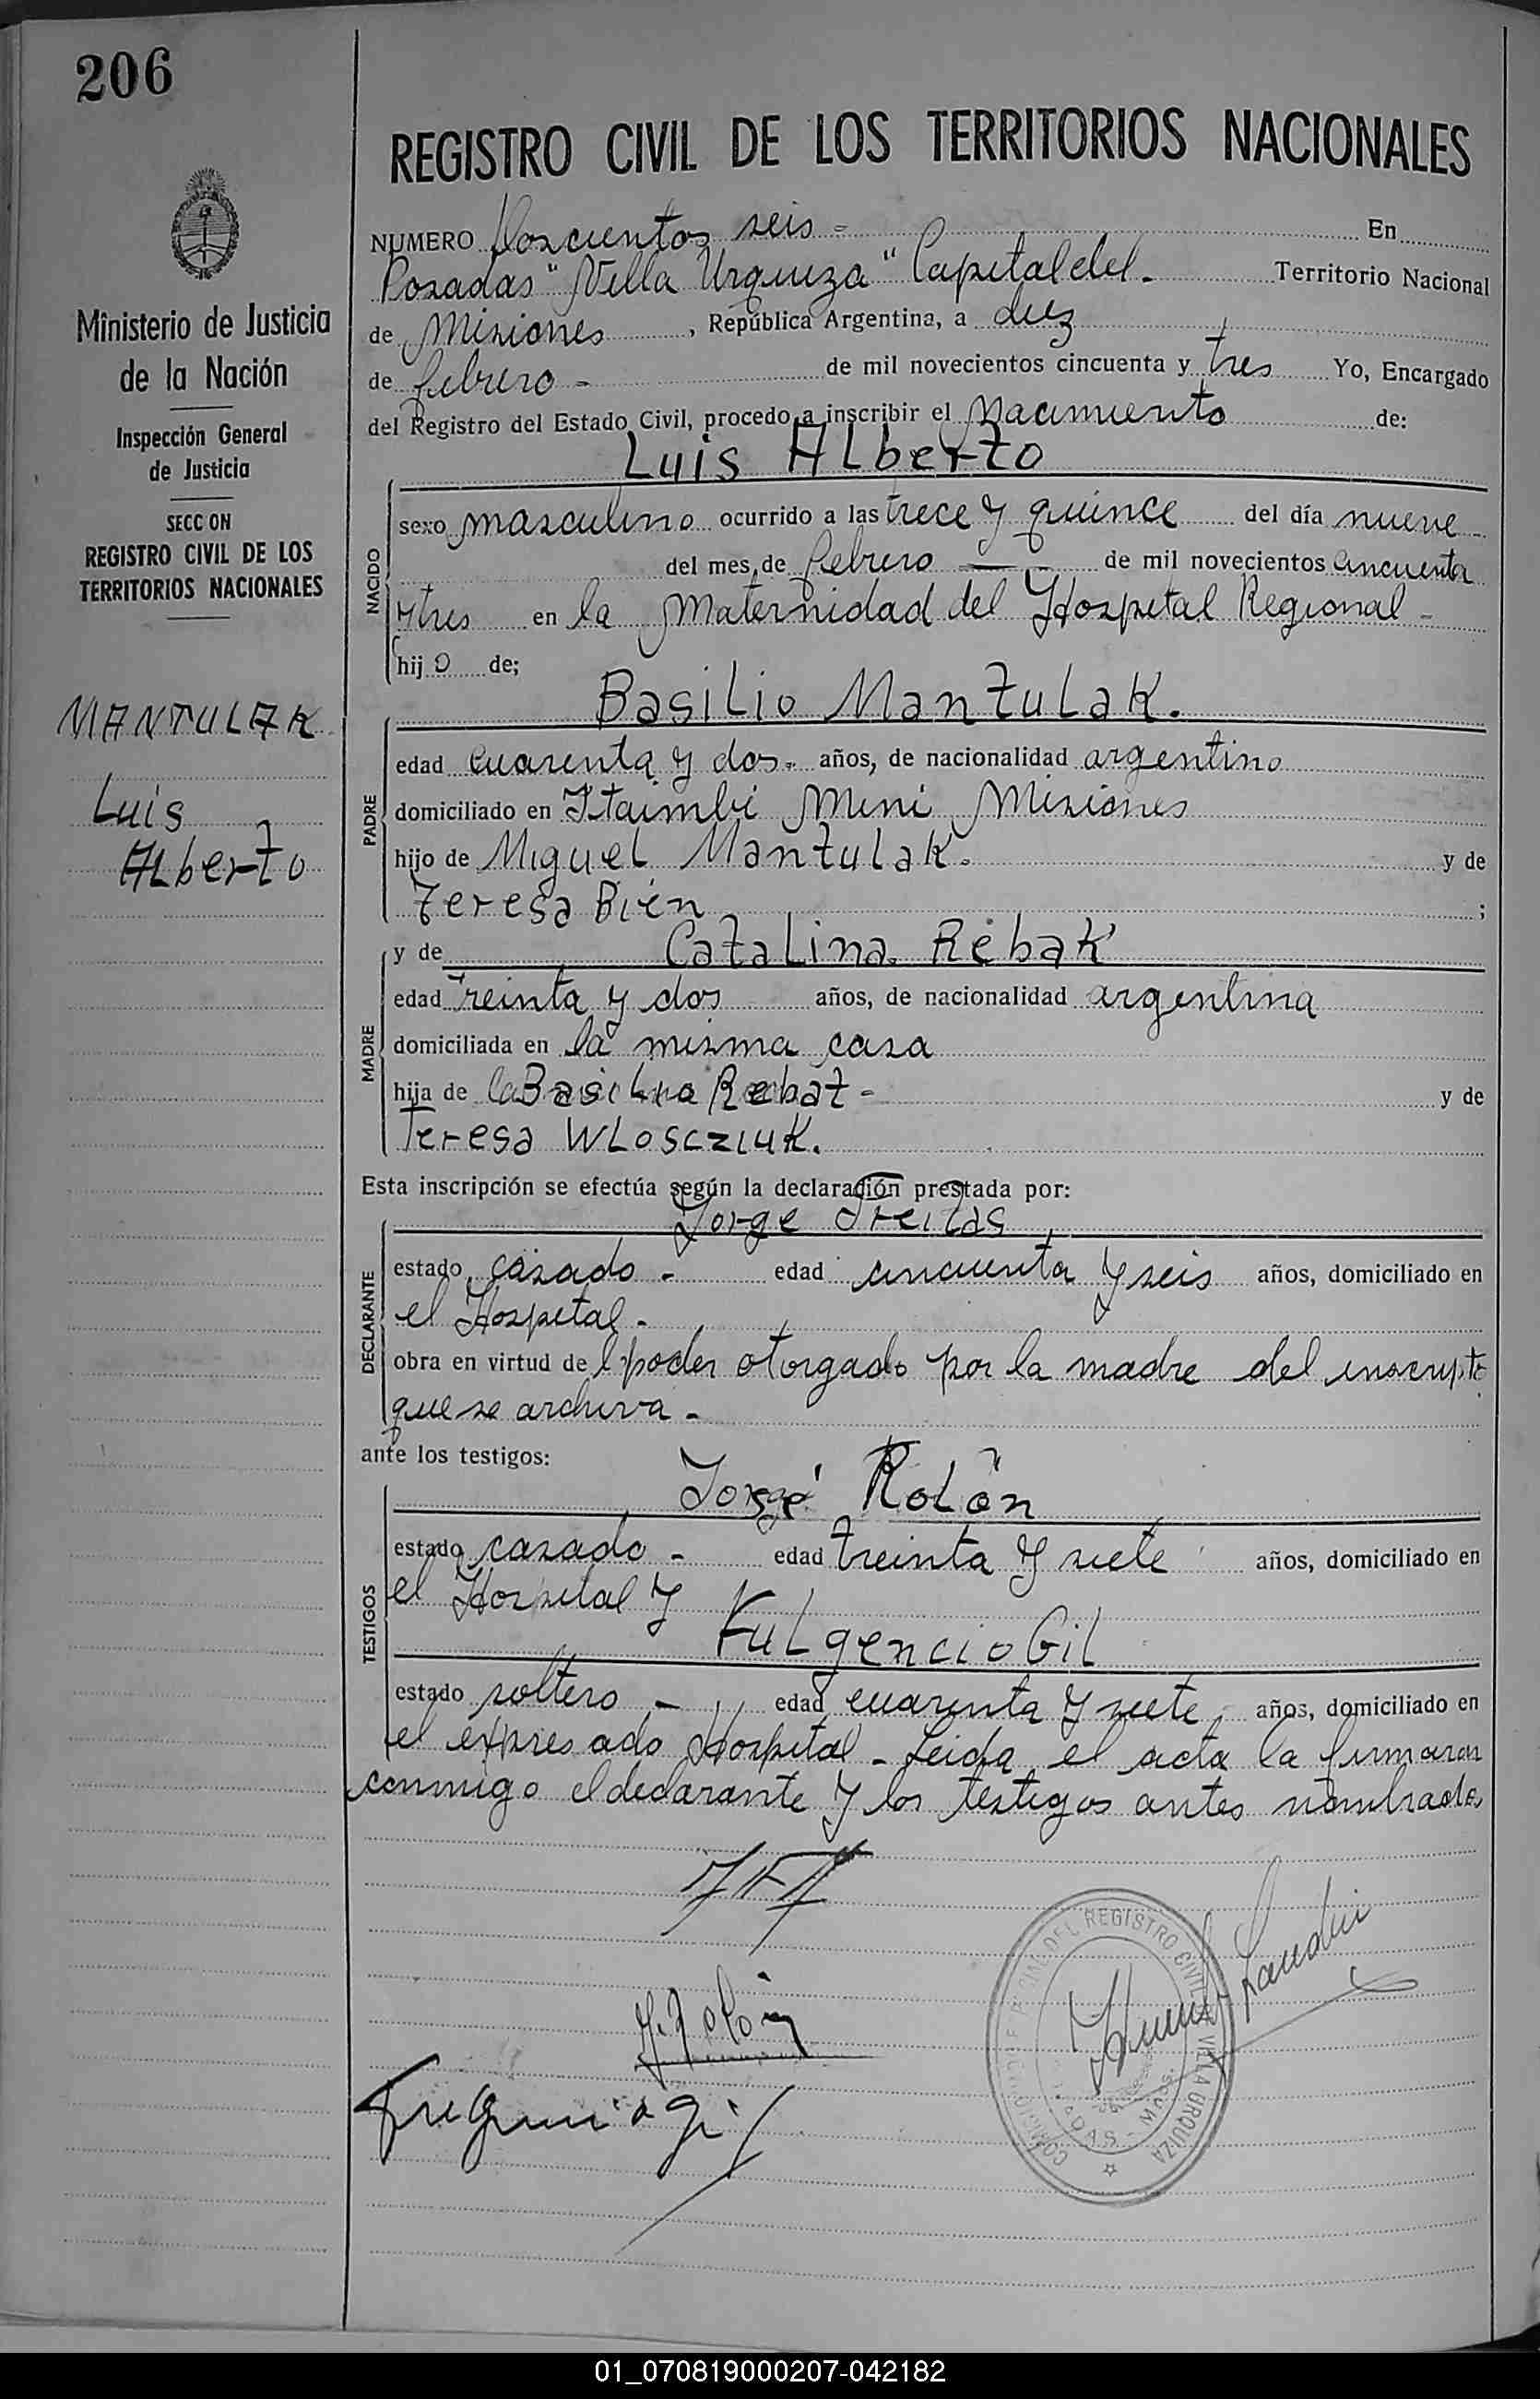 206
REGISTRO CIVIL DE LOS TERRITORIOS NACIONALES
Ministerio de Justicia
de la Nación
Inspección General
de Justicia
SECC ON
REGISTRO CIVIL DE LOS
TERRITORIOS NACIONALES
MANTULAK
Luis
Alberto
NUMERO Doscientos seis - En
Posadas "Villa Urquiza" Capital del - Territorio Nacional
de Misiones, República Argentina, a diez
de febrero - de mil novecientos cincuenta y tres Yo, Encargado
del Registro del Estado Civil, procedo a inscribir el nacimiento de:
Luis Alberto
NACIDO
sexo masculino ocurrido a las trece y quince del día nueve
del mes de febrero — de mil novecientos cincuenta
y tres en la Maternidad del Hospital Regional -
hijo de;
Basilio Mantulak.
PADRE
edad cuarenta y dos - años, de nacionalidad argentino
domiciliado en Itaimbé Mini Misiones
hijo de Miguel Mantulak. y de
Teresa Bién ;
y de Catalina Rebak
MADRE
edad treinta y dos años, de nacionalidad argentina
domiciliada en la misma casa
hija de Basilio Rebat - y de
Teresa Wloscziuk.
Esta inscripción se efectúa según la declaración prestada por:
Jorge Freitas
DECLARANTE
estado casado - edad cincuenta y seis años, domiciliado en
el Hospital -
obra en virtud del poder otorgado por la madre del inscripto
que se archiva -
ante los testigos:
Jorge Rolón
TESTIGOS
estado casado - edad treinta y siete años, domiciliado en
el Hospital y
Fulgencio Gil
estado soltero - edad cuarenta y siete años, domiciliado en
el expresado Hospital - Leida el acta la firmaron
conmigo el declarante y los testigos antes nombrados
J. Rolón
DEL REGISTRO CIVIL
VILLA URQUIZA
01_070819000207-042182